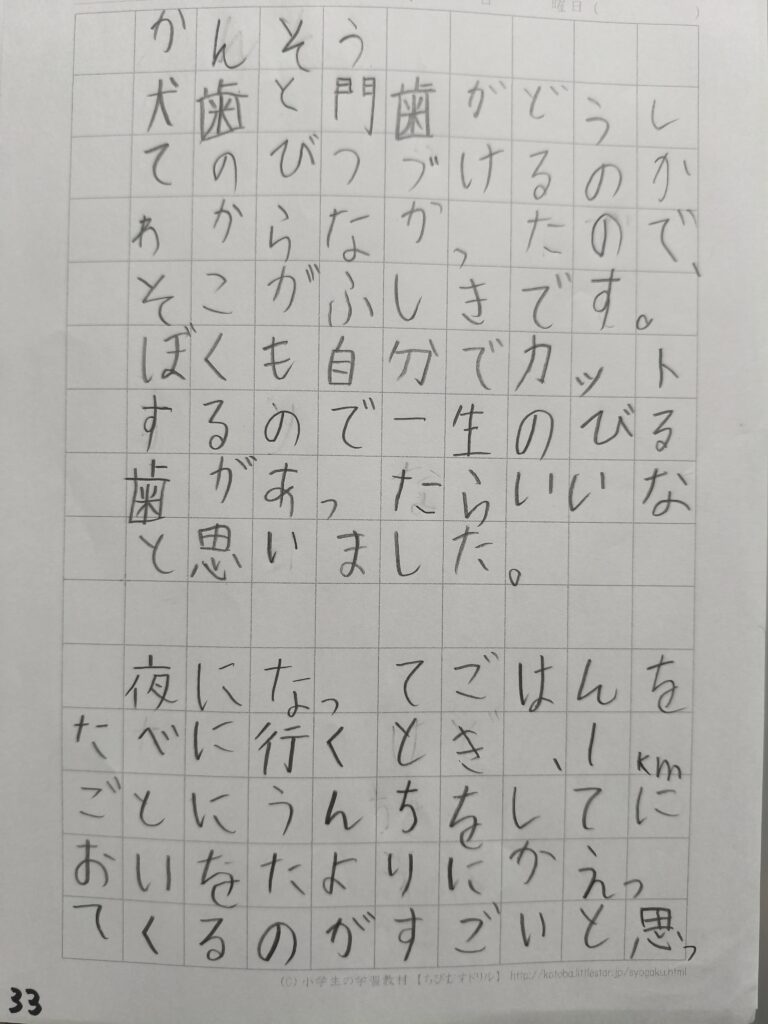 日 曜日( )
かんそう
犬歯と門歯がどうし
てのびつづけるのか
わからなかったので、
そこがふしきです。
ぼくも自分でカット
するので一生のびる
歯があったらいいな
と思いました。
夜になってごはんを
たべに行くとき、1km
ごとにうんちをしてに
おいをたよりにかえっ
てくるのがすごいと思っ
(C) 小学生の学習教材【ちびむすドリル】 http://kotoba.littlestar.jp/syogaku.html
33